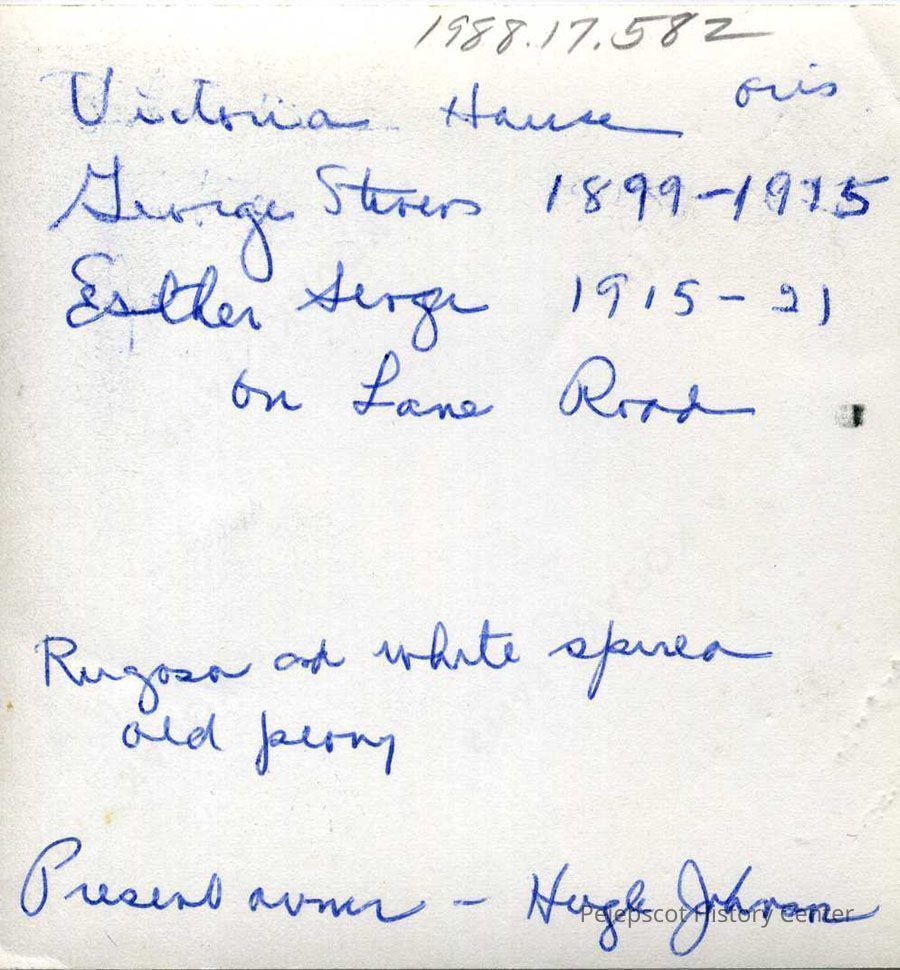 1988.17.582
Victoria House
George Stevens 1899-1915
Esther 1915-21
on Lane Road
Rugosa and white spirea
old peony
Present owner - Hugh Johnson
Pejepscot History Center